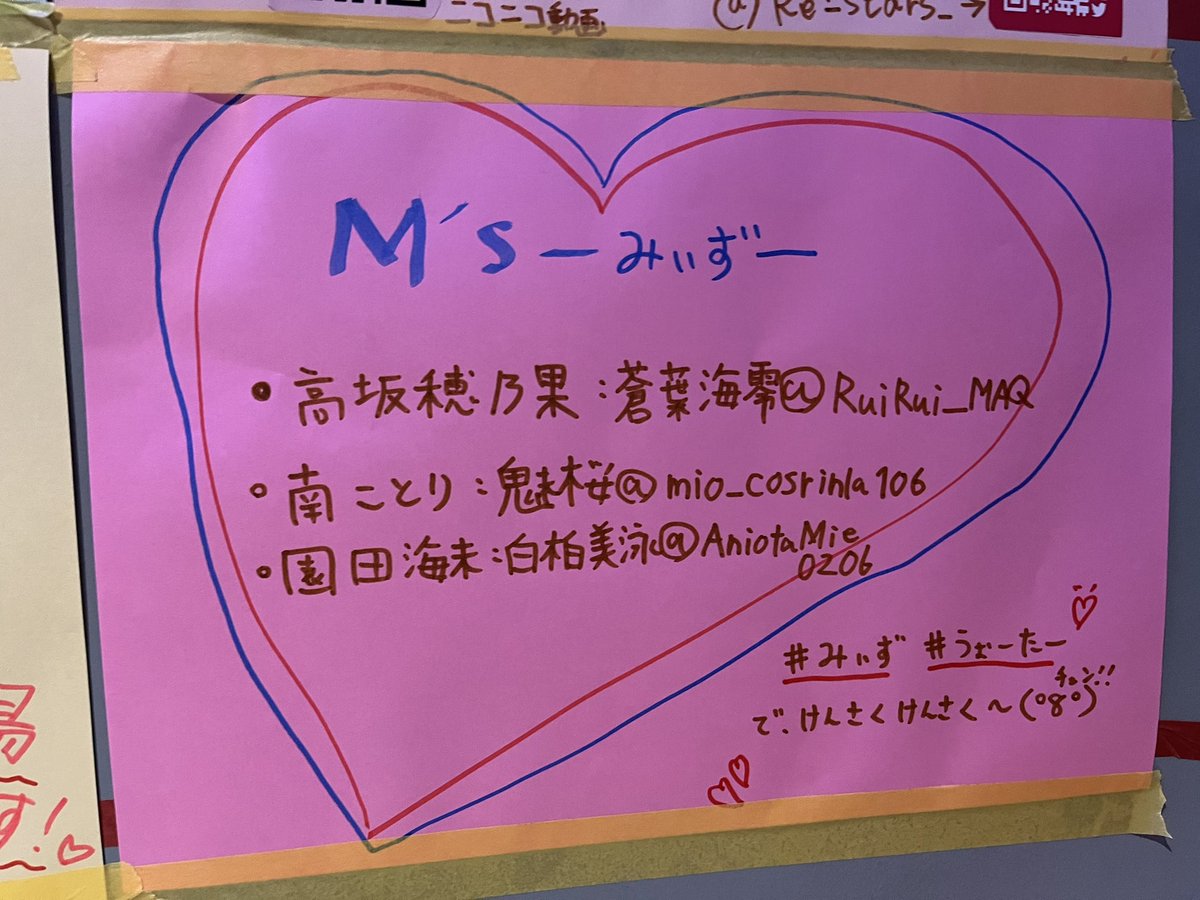 ニコニコ動画
@Re=stars_→
M's ーみぃずー
・高坂穂乃果:蒼葉海零@RuiRui_MAQ
・南ことり:魅桜@mio_cosrinla106
・園田海未:白柏美泳@AniotaMie
0206
#みぃず #うぉーたー
チュン!!
で、けんさくけんさく〜(°8°)
す!